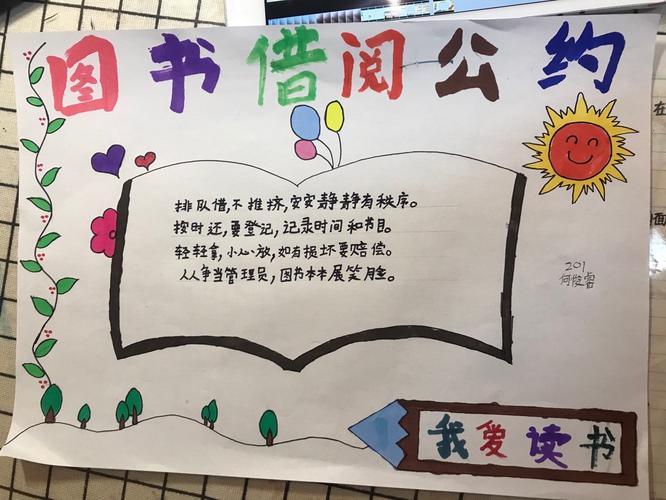 图书借阅公约
排队借,不推挤,安安静静有秩序。
按时还,要登记,记录时间和书目。
轻轻拿,小心放,如有损坏要赔偿。
人人争当管理员,图书本本展笑脸。
201
何俊睿
我爱读书